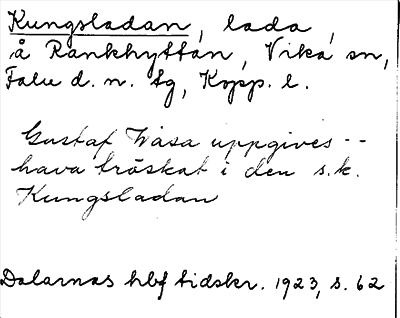 Kungsladan, lada,
å Rankhyttan, Vika sn,
Falu d. n. tg, Kopp. l.
Gustaf Wasa uppgives --
hava tröskat i den s.k.
Kungsladan
Dalarnas hbf tidskr. 1923, s. 62